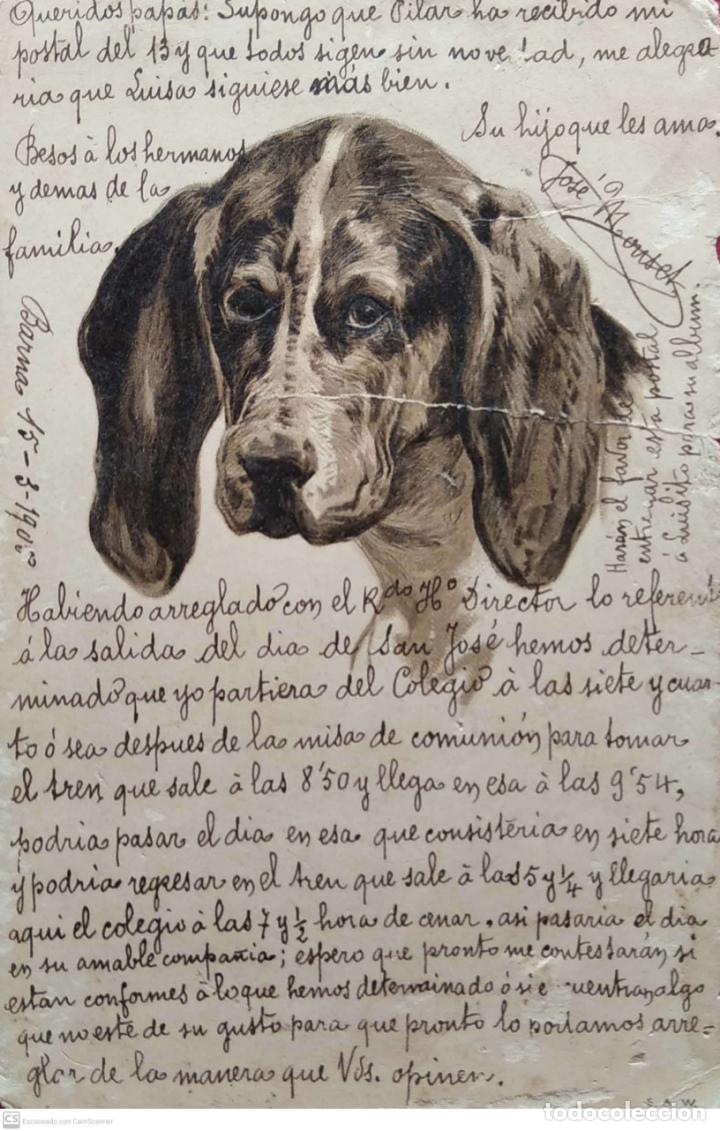 Queridos papás: Supongo que Pilar ha recibido mi
postal del 13 y que todos sigen sin novedad, me alegra
ria que Luisa siguiese más bien.
Su hijo que les ama.
José
Besos à los hermanos
y demas de la
familia.
Barna 15-3-190
Harán el favor de
entregar esta postal
á Luisito para su album.
Habiendo arreglado con el Rdo Hº Director lo referent
á la salida del dia de San José hemos deter-
minado que yo partiera del Colegio à las siete y cuar-
to ó sea despues de la misa de comunión para tomar
el tren que sale à las 8'50 y llega en esa à las 9'54,
podria pasar el dia en esa que consisteria en siete hora
y podria regresar en el tren que sale à las 5 y 1/4 y llegaria
aqui el colegio à las 7 y 1/2 hora de cenar. asi pasaria el dia
en su amable compañia; espero que pronto me contestarán si
estan conformes à lo que hemos determinado ó si e cuentran algo
que no esté de su gusto para que pronto lo podamos arre-
glar de la manera que Vds. opinen.
S. & W.
CS Escaneado con CamScanner
todocoleccion